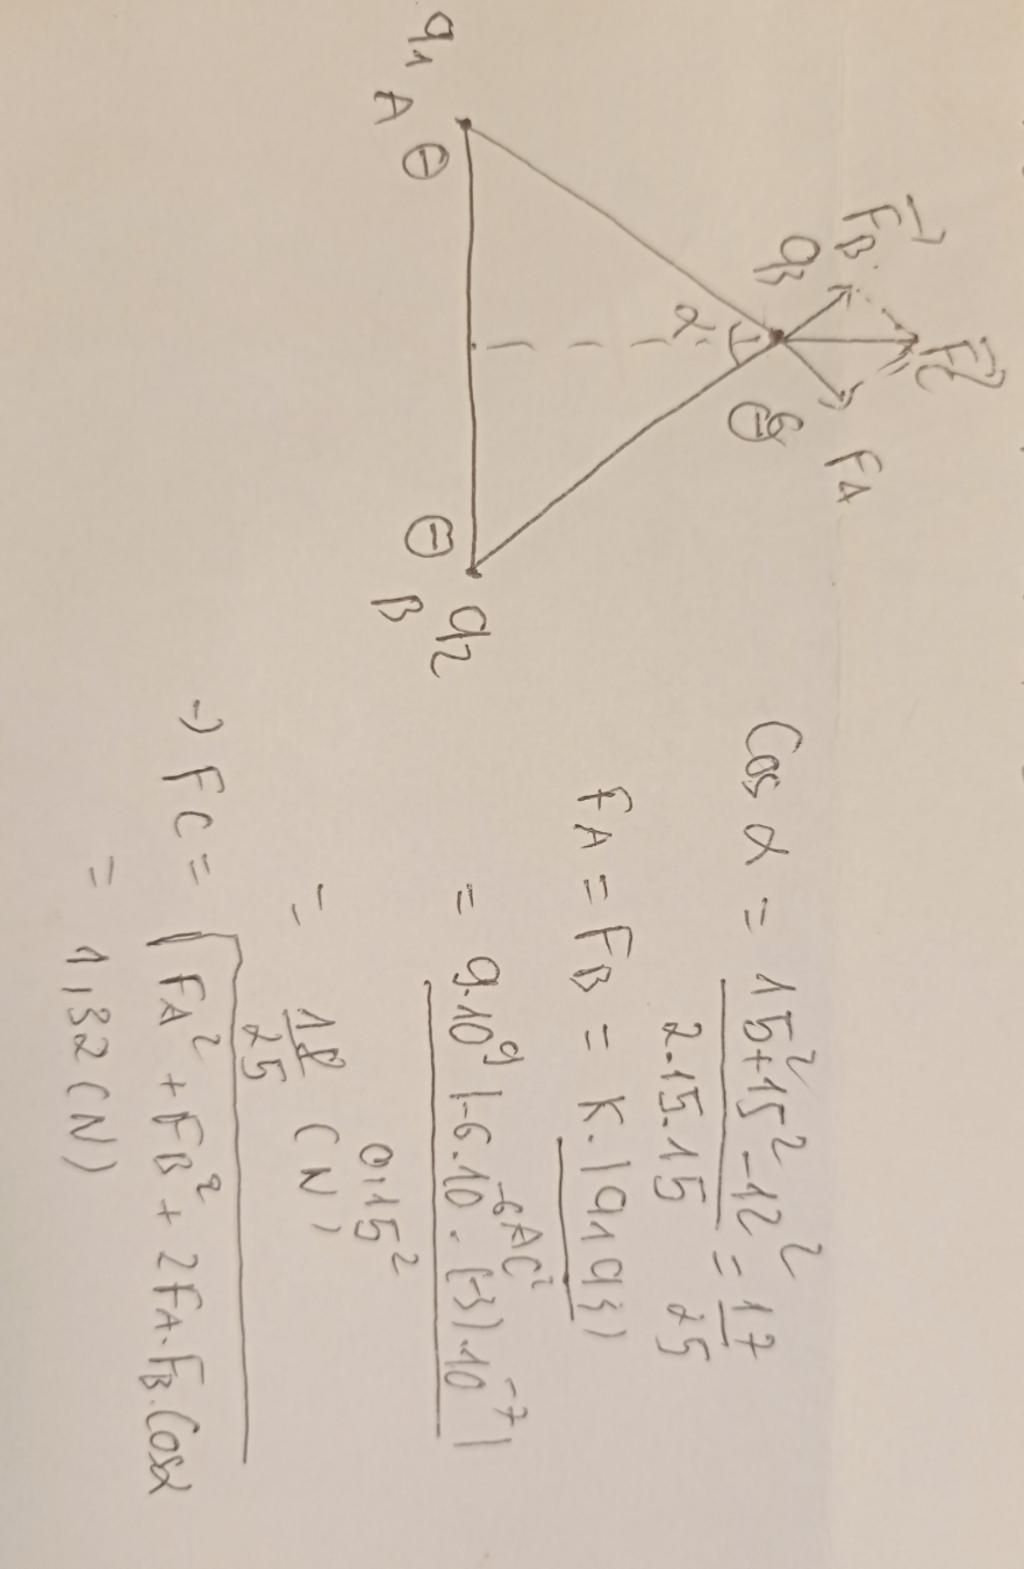 q1
A
⊖
⊖
B
q2
q3
α
⊖
F⃗B
F⃗C
FA
Cos α = (15² + 15² - 12²) / (2.15.15) = 17/25
FA = FB = K. |q1 q3| / AC²
= 9.10⁹ |-6.10⁻⁶.(-3).10⁻⁷| / 0,15²
= 18/25 (N)
→ FC = √(FA² + FB² + 2FA.FB.Cosα)
= 1,32 (N)